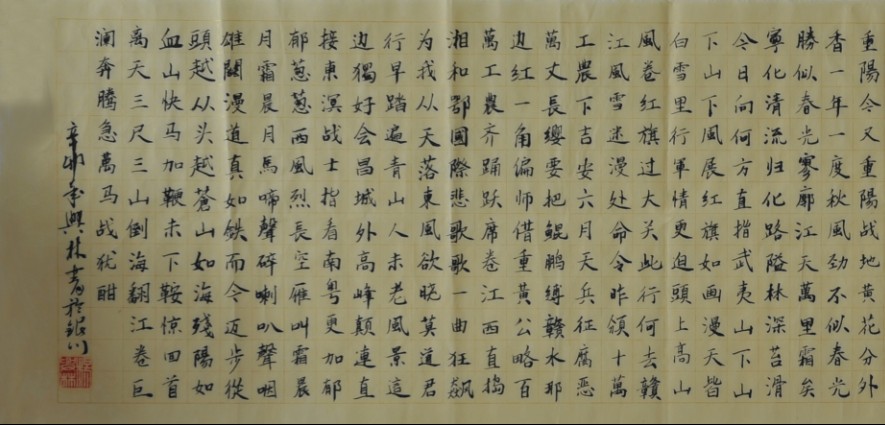 重陽今又重陽战地黄花分外
香一年一度秋風劲不似春光
勝似春光寥廓江天萬里霜矣
寧化清流归化路隘林深苔滑
今日向何方直指武夷山下山
下山下風展红旗如画漫天皆
白雪里行軍情更迫頭上高山
風卷红旗过大关此行何去贛
江風雪迷漫处命令昨领十萬
工農下吉安六月天兵征腐恶
萬丈長缨要把鲲鹏缚贛水那
边红一角偏师借重黄公略百
萬工農齐踊跃席卷江西直捣
湘和鄂國際悲歌歌一曲狂飙
为我从天落東風欲晓莫道君
行早踏遍青山人未老風景這
边獨好会昌城外高峰颠連直
接東溟战士指看南粤更加郁
郁葱葱西風烈長空雁叫霜晨
月霜晨月馬啼聲碎喇叭聲咽
雄關漫道真如铁而今迈步從
頭越从头越蒼山如海殘陽如
血山快马加鞭未下鞍惊回首
离天三尺三山倒海翻江卷巨
澜奔腾急萬马战犹酣
辛卯 興林書於銀川